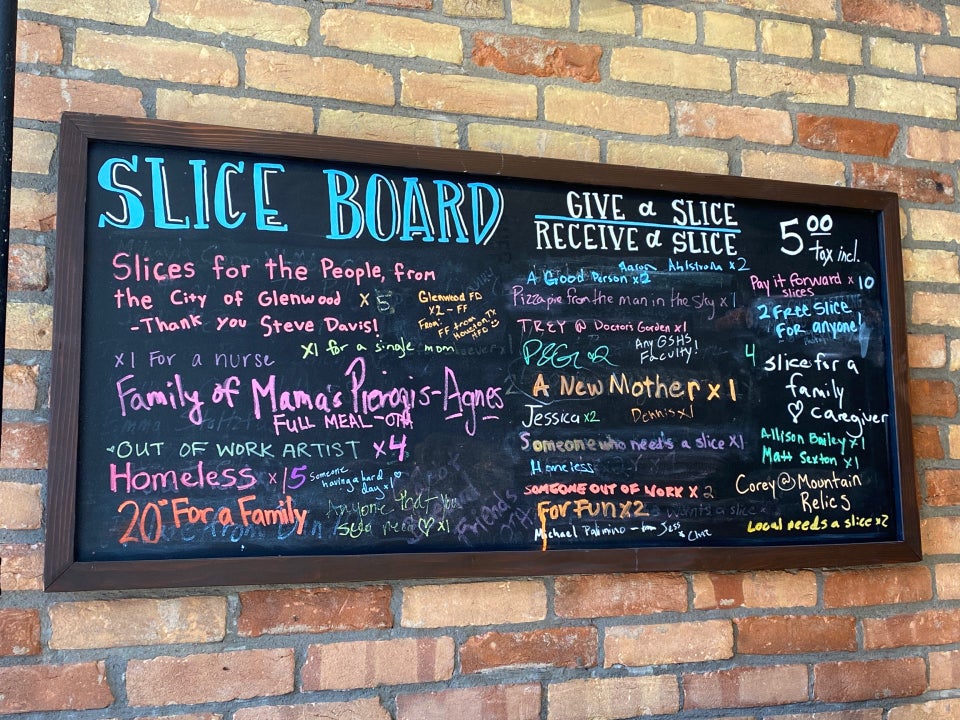 SLICE BOARD
GIVE a SLICE
RECEIVE a SLICE
5.00
tax incl.
Slices for the People, from
the City of Glenwood x 5
-Thank you Steve Davis!
Glenwood FD
x2 - FF
From:
FF from
Houston, TX
HFD
x1 for a single mom
x1 For a nurse
Family of Mama's Pierogis - Agnes
FULL MEAL - OTH
OUT OF WORK ARTIST x4
Homeless x 15
Someone
having a hard
day x1
20" For a Family
Anyone that you
see need ♡ x1
Aaron Ahlstrom x 2
A Good Person x2
Pizza pie from the man in the sky x 1
TREY @ Doctors Garden x1
P&G x2
Any GSHS
Faculty!
A New Mother x 1
Jessica x2
Dennis x1
Someone who needs a slice x1
Homeless
SOMEONE OUT OF WORK x 2
For Fun x2
Michael Palimino - from Jess
& Chaz
Pay it forward x 10
slices
2 Free Slice
For anyone!
4 slice for a
family
♡ caregiver
Allison Bailey x1
Matt Sexton x1
Corey @ Mountain
Relics
Local needs a slice x2